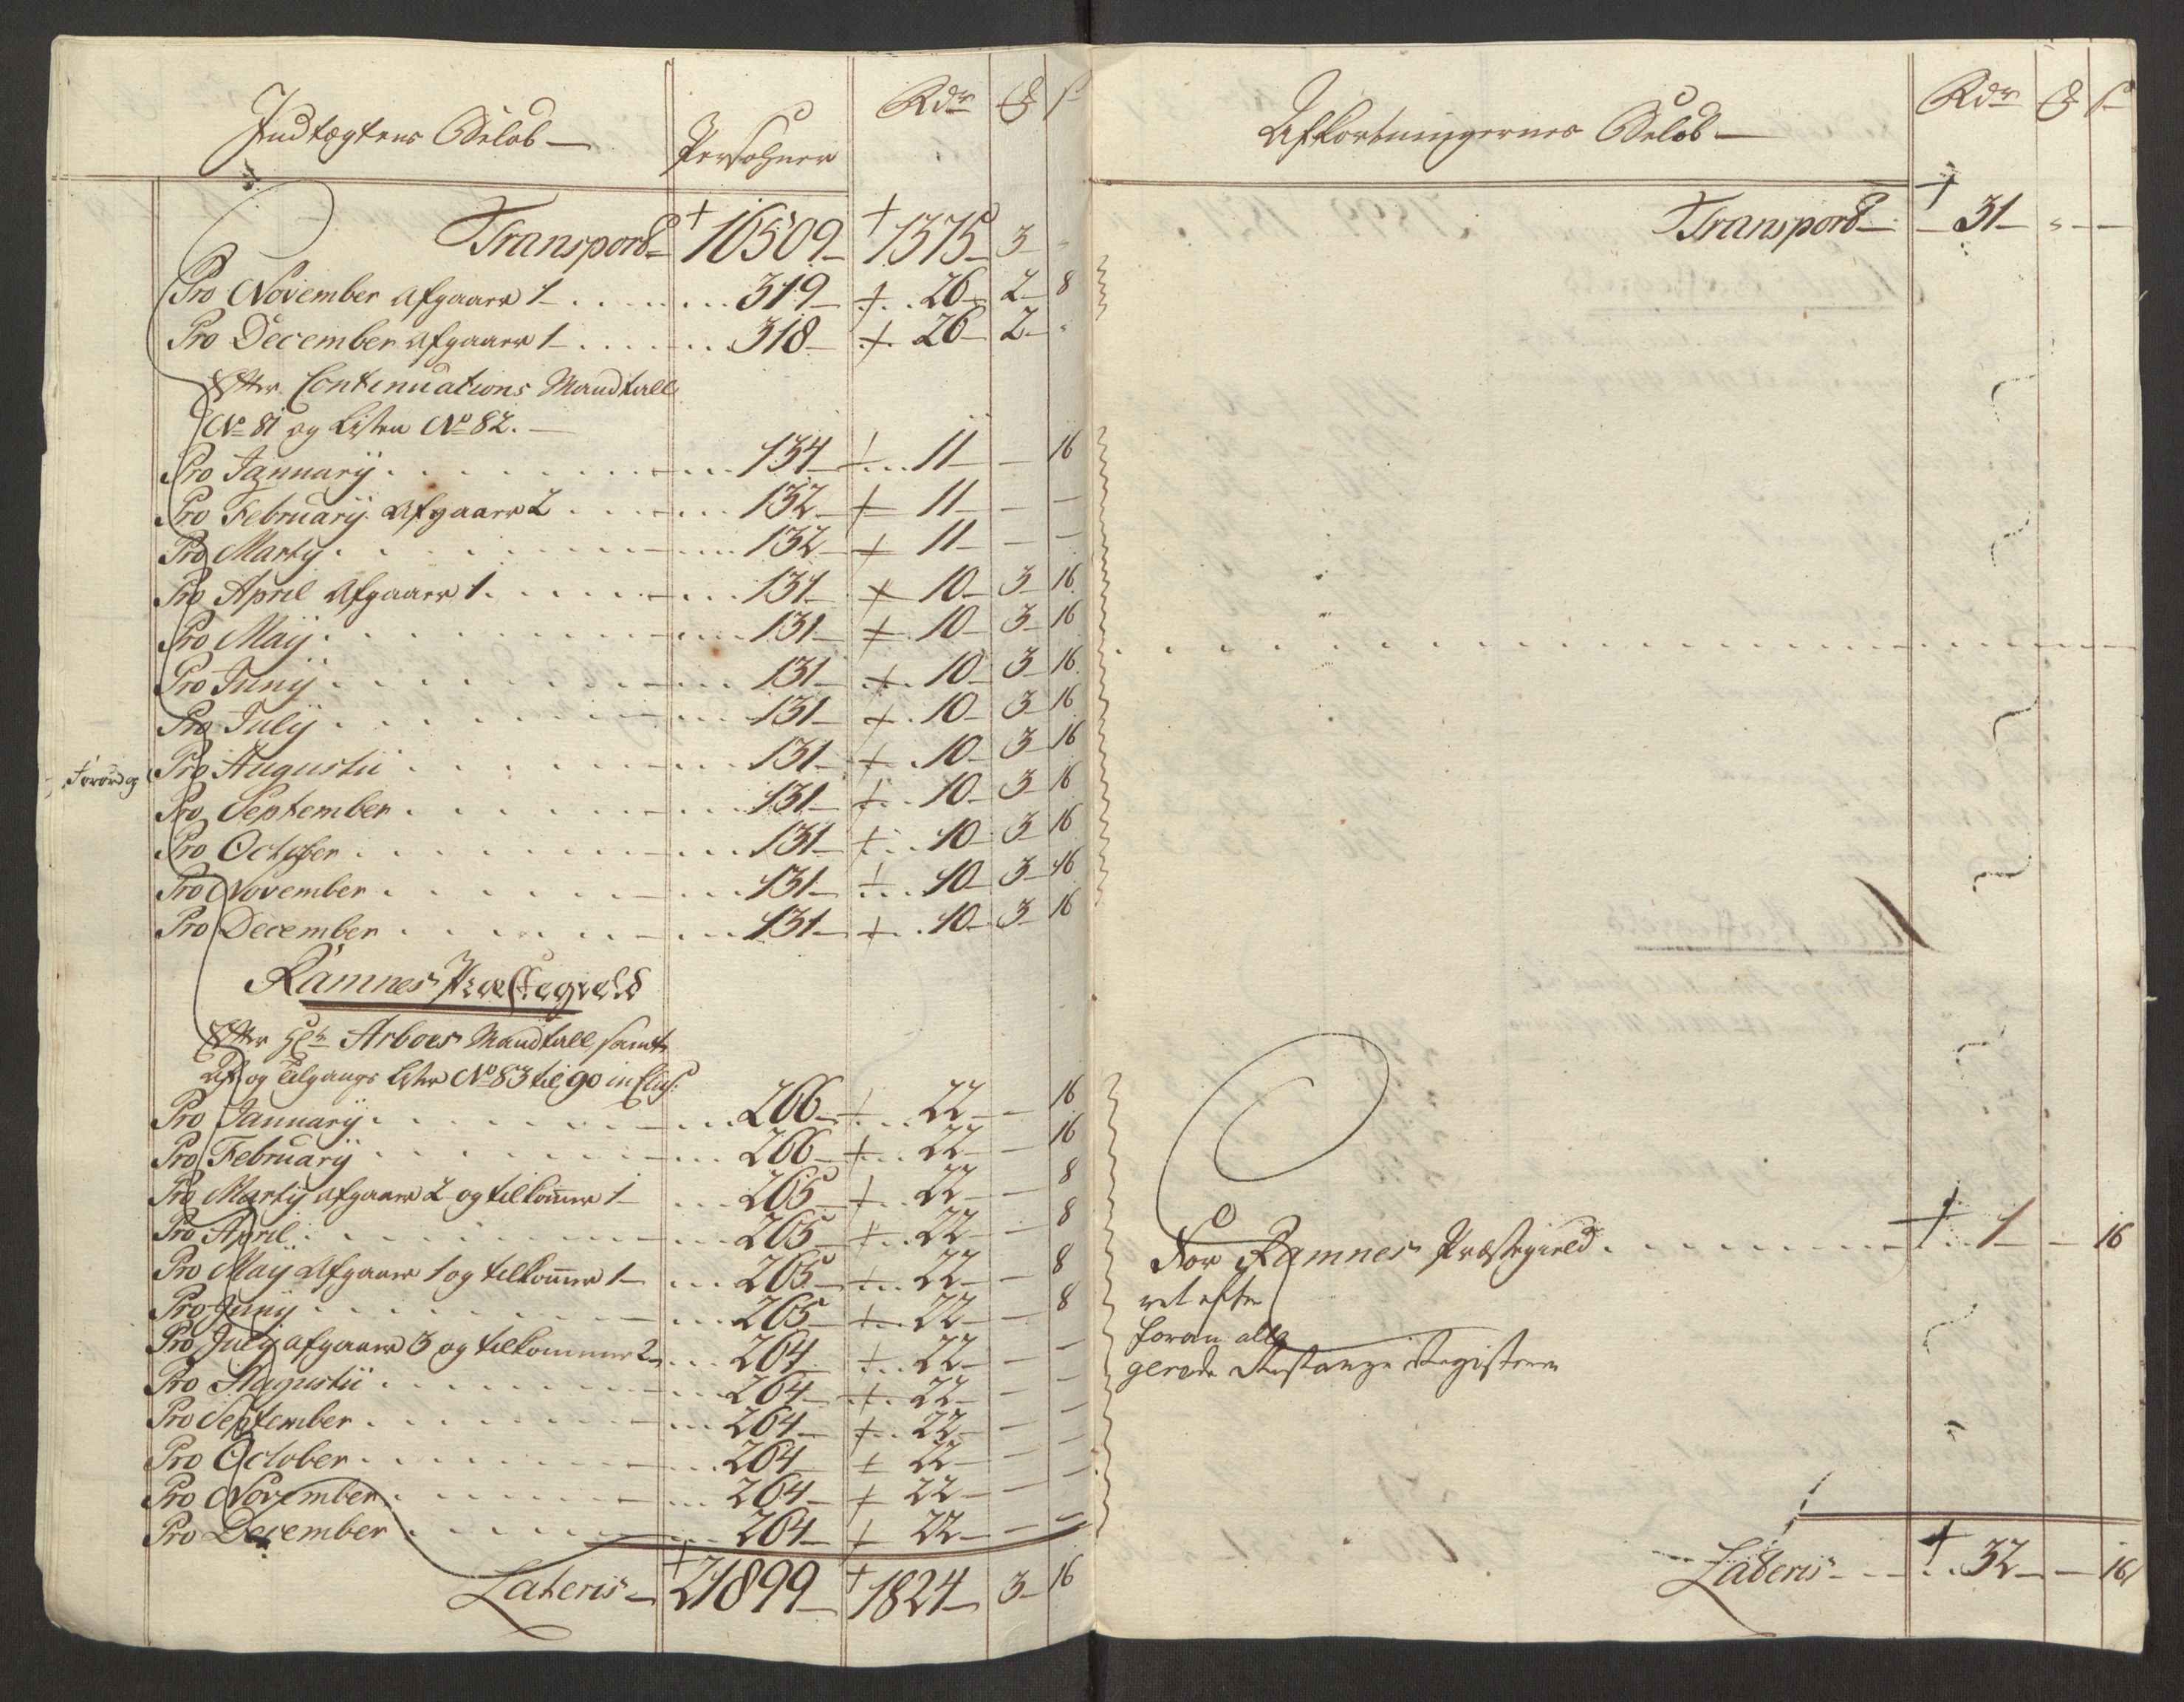 Indtægtens Beløb — Persohner Rdr ß
Transport 16509 1375 3 -
Pro November afgaaer 1 319 26 2 8
Pro December afgaaer 1 318 26 2 -
Efter Continuations Mandtall
No 81 og Listen No 82.
Pro Januarij 134 11 — 16
Pro Februarij Afgaaer 2 132 11 — —
Pro Martij 132 11 — —
Pro April Afgaaer 1 131 10 3 16
Pro Maij 131 10 3 16
Pro Junij 131 10 3 16
Pro Julij 131 10 3 16
Pro Augustii 131 10 3 16
Pro September 131 10 3 16
Pro October 131 10 3 16
Pro November 131 10 3 16
Pro December 131 10 3 16
Ramnes Præstegield
Efter Hr Arboes Mandtall, samt
Af og Tilgangs Lister No 83 til 90 inclus:
Pro Januarij 266 22 — 16
Pro Februarij 266 22 — 16
Pro Martij afgaaer 2 og tilkommer 1 265 22 — 8
Pro April 265 22 — 8
Pro Maij Afgaaer 1 og tilkommer 1 265 22 — 8
Pro Junij 265 22 — 8
Pro Julij afgaaer 3 og tilkommer 2 264 22 — —
Pro Augustii 264 22 — —
Pro September 264 22 — —
Pro October 264 22 — —
Pro November 264 22 — —
Pro December 264 22 — —
Lateris 21899 1824 3 16
Afkortningernes Beløb — Rdr ß
Transport 31 - —
For Ramnes Præstegield 1 — 16
vel efter
foran alle
gerede Restantz Registere
Lateris 32 — 16